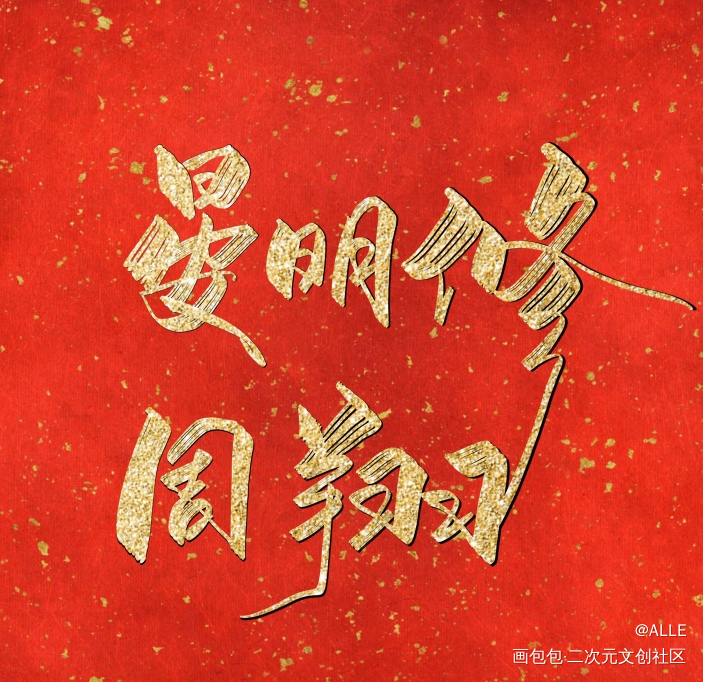 晏明修
周翔
@ALLE
画包包·二次元文创社区